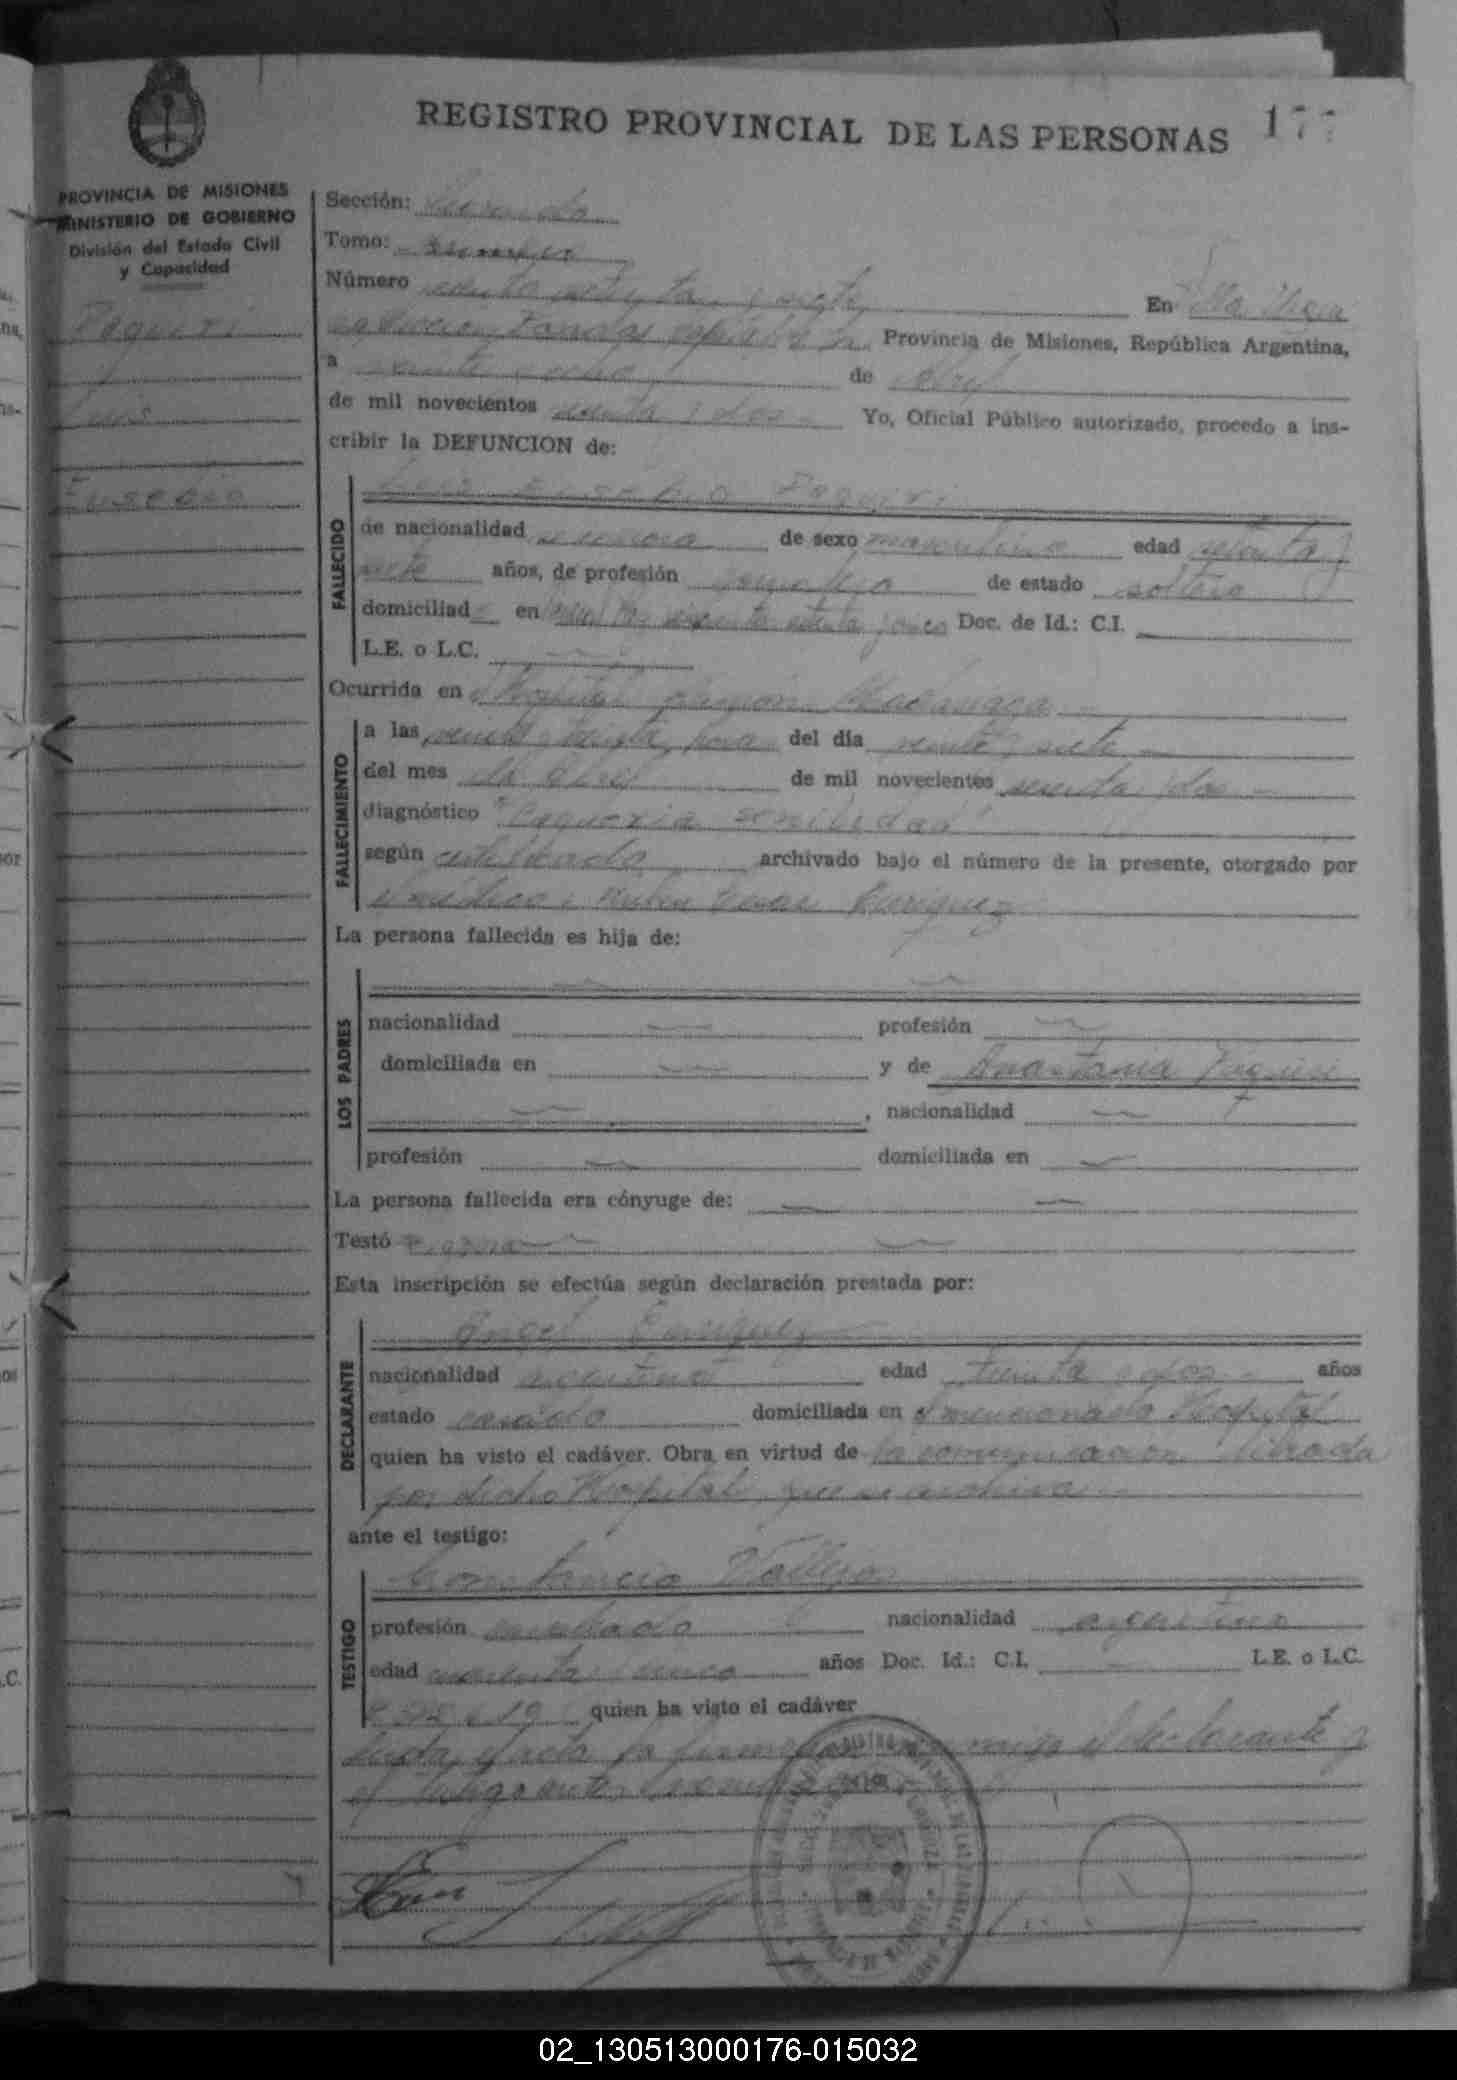 REGISTRO PROVINCIAL DE LAS PERSONAS 177
PROVINCIA DE MISIONES
MINISTERIO DE GOBIERNO
División del Estado Civil
y Capacidad
Piquiri
Luis
Eusebio
Sección:
Tomo: Primero
Número ciento setenta y siete En
Provincia de Misiones, República Argentina,
a veinte y ocho de Abril
de mil novecientos sesenta y dos Yo, Oficial Público autorizado, procedo a ins-
cribir la DEFUNCION de:
FALLECIDO
Luis Eusebio Piquiri
de nacionalidad se ignora de sexo masculino edad setenta y
siete años, de profesión jornalero de estado soltero
domiciliado en Doc. de Id.: C.I.
L.E. o L.C.
Ocurrida en el Hospital Ramón Madariaga
FALLECIMIENTO
a las veinte y treinta hora del día veinte y siete
del mes de Abril de mil novecientos sesenta y dos
diagnóstico "Caquexia senilidad"
según certificado archivado bajo el número de la presente, otorgado por
el médico: Enriquez
La persona fallecida es hija de:
LOS PADRES
nacionalidad profesión
domiciliada en y de Anastacia Piquiri
, nacionalidad
profesión domiciliada en
La persona fallecida era cónyuge de:
Testó se ignora
Esta inscripción se efectúa según declaración prestada por:
DECLARANTE
Angel Enriquez
nacionalidad argentino edad treinta y dos años
estado casado domiciliada en el mencionado Hospital
quien ha visto el cadáver. Obra en virtud de la comunicación librada
por dicho Hospital, que se archiva
ante el testigo:
TESTIGO
Constancio Vallejos
profesión empleado nacionalidad argentino
edad cuarenta y cinco años Doc. Id.: C.I. L.E. o L.C.
quien ha visto el cadáver
Leída el acta la firman conmigo el declarante y
el testigo antes
02_130513000176-015032